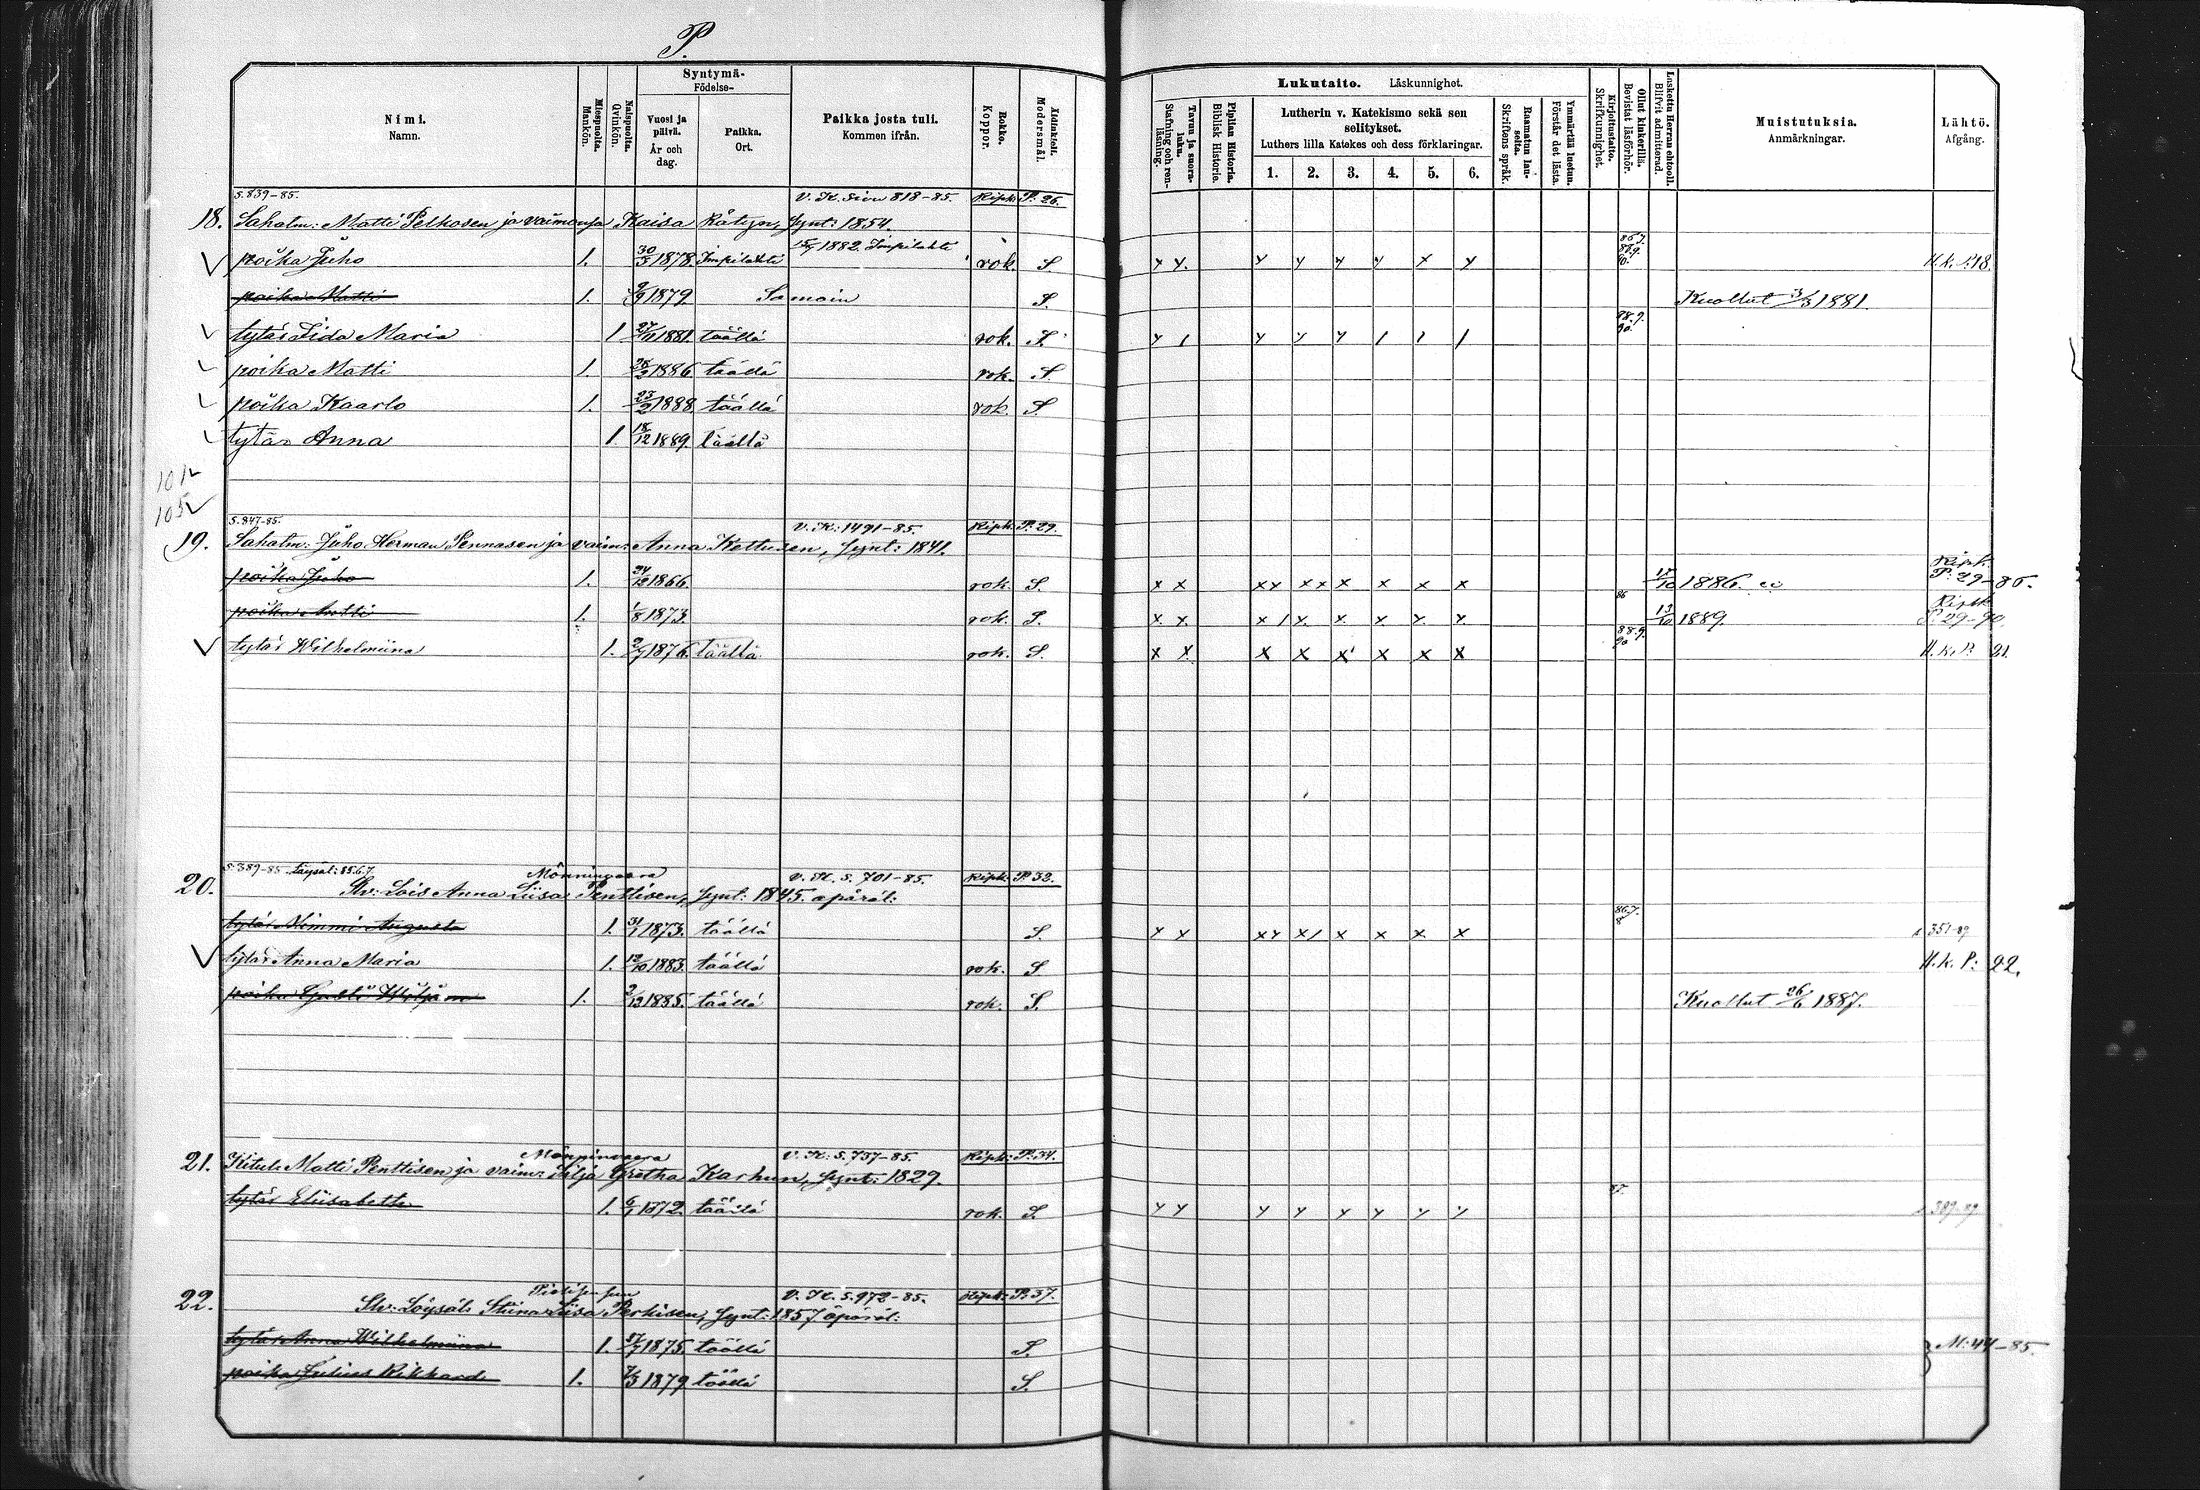 P.
Nimi. Namn.
Miespuolia. Mankön.
Naispuolia. Qvinkön.
Syntymä- Födelse-
Vuosi ja päivä. År och dag.
Paikka. Ort.
Paikka josta tuli. Kommen ifrån.
Rokko. Koppor.
Äidinkieli. Modersmål.
Lukutaito. Läskunnighet.
Tavuu ja suora-luku. Stafning och ren-läsning.
Piplian Historia. Biblisk Historie.
Lutherin v. Katekismo sekä sen selitykset. Luthers lilla Katekes och dess förklaringar.
1. 2. 3. 4. 5. 6.
Raamatun lauseita. Skriftens språk.
Ymmärtää luetun. Förstår det lästa.
Kirjoitustaito. Skrifkunnighet.
Ollut kinkerillä. Bevistat läsförhör.
Laskettu Herran ehtool. Blifvit admitterad.
Muistutuksia. Anmärkningar.
Lähtö. Afgång.
S. 839-85. V. K. sivu 818-85. Ripk. P. 26.
18. Sahatm: Matti Pelkosen ja vaimonsa Kaisa Rätyn, synt: 1854.
poika Juho 1. 30/3 1878. Impilahti 1882. Impilahti rok. S. y y. y y y y x y 86.7. 88.9. 90. H. k. P. 18.
poika Matti 1. 9/9 1879. Samoin S. Kuollut 3/3 1881.
tytär Iida Maria 1 27/11 1881. täällä rok. S. y 1 y y y 1 1 1 88.9. 90.
poika Matti 1. 28/2 1886 täällä rok. S.
poika Kaarlo 1. 23/2 1888 täällä rok. S.
tytär Anna 1 18/12 1889. täällä
101
105
S. 947-85. V. K: 1491-85. Ripk. P. 29.
19. Sahatm: Juho Herman Pennasen ja vaim: Anna Kettusen, synt: 1841.
poika Juho 1. 24/12 1866. rok. S. x x xx xx x x x x 17/10 1886. Ripk. P: 29-86.
poika Antti 1. 1/8 1873. rok. S. x y. x 1 y. x. x. y. y. 86 13/10 1889. Ripk P: 29-90
tytär Wilhelmiina 1. 2/7 1876. täällä rok. S. x x x x x x x x 88.9. 90 H. k. P. 21.
S. 389-85. täysäl: 85.6.7. Mönninvaara V. K. S. 701-85. Ripk. P. 32.
20. Slv: Lois Anna Liisa Penttisen, synt: 1845. äpäräl:
tytär Mimmi Augusta 1. 31/1 1873. täällä S. y y xx x1 x x x. x 86.7. 8 s. 351-89
tytär Anna Maria 1. 13/10 1883. täällä rok. S H. k. P: 22.
poika Kustó Wiljam 1. 2/12 1885. täällä rok. S. Kuollut 26/6 1887.
Mönninvaara V. K: S. 737-85. Ripk: P: 34.
21. Kitul. Matti Penttisen ja vaim: Silja Gretha Karhun, synt: 1829.
tytär Eliisabetta 1. 6/1 1872. täällä rok. S. y y y y y y y y 87. s. 389-89
V. K. S. 972-85. Ripk: P. 37.
22. Slv: Löysäl: Stiina Liisa Perkisen, synt: 1857 äpäräl:
tytär Anna Wilhelmiina 1. 17/7 1875. täällä S. } M: 44-85.
poika Julius Rikhard 1. 7/3 1879 täällä S.